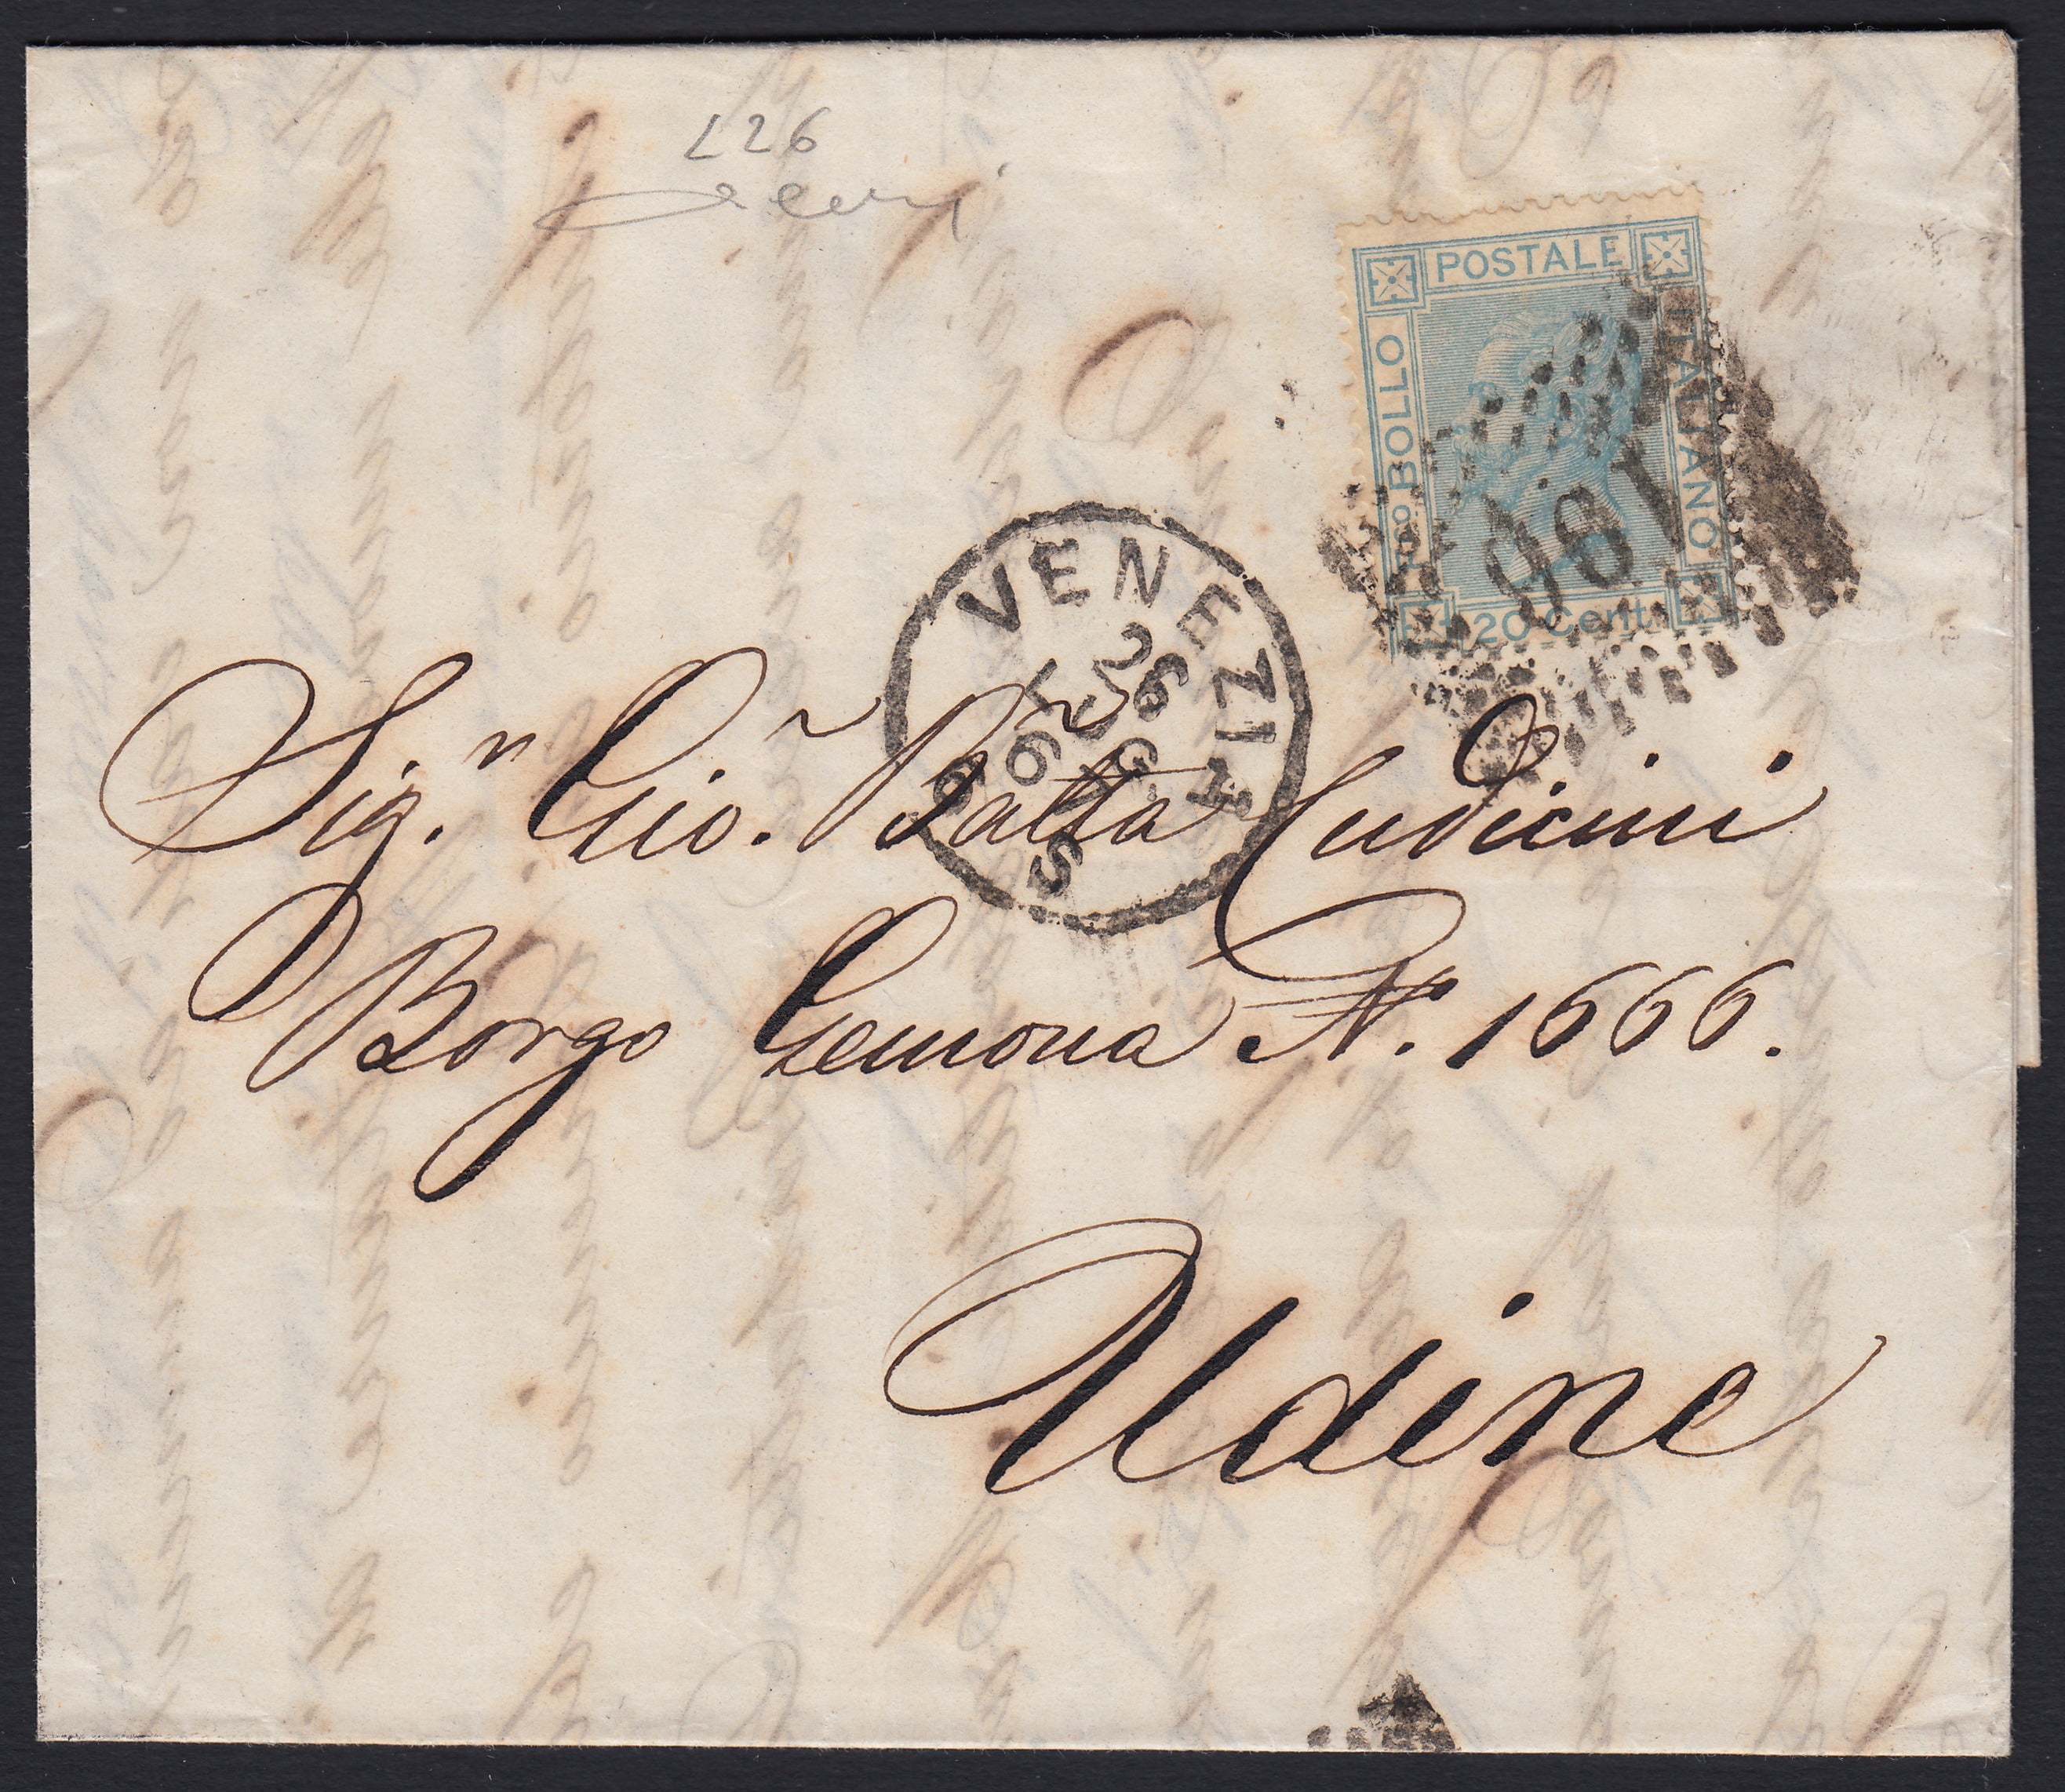 L 26
POSTALE
BOLLO
ITALIANO
20 Cent
196
VENEZIA
26
LUG
67
S
Sig.n Gio. Batta Cudicini
Borgo Gemona No. 1666.
Udine